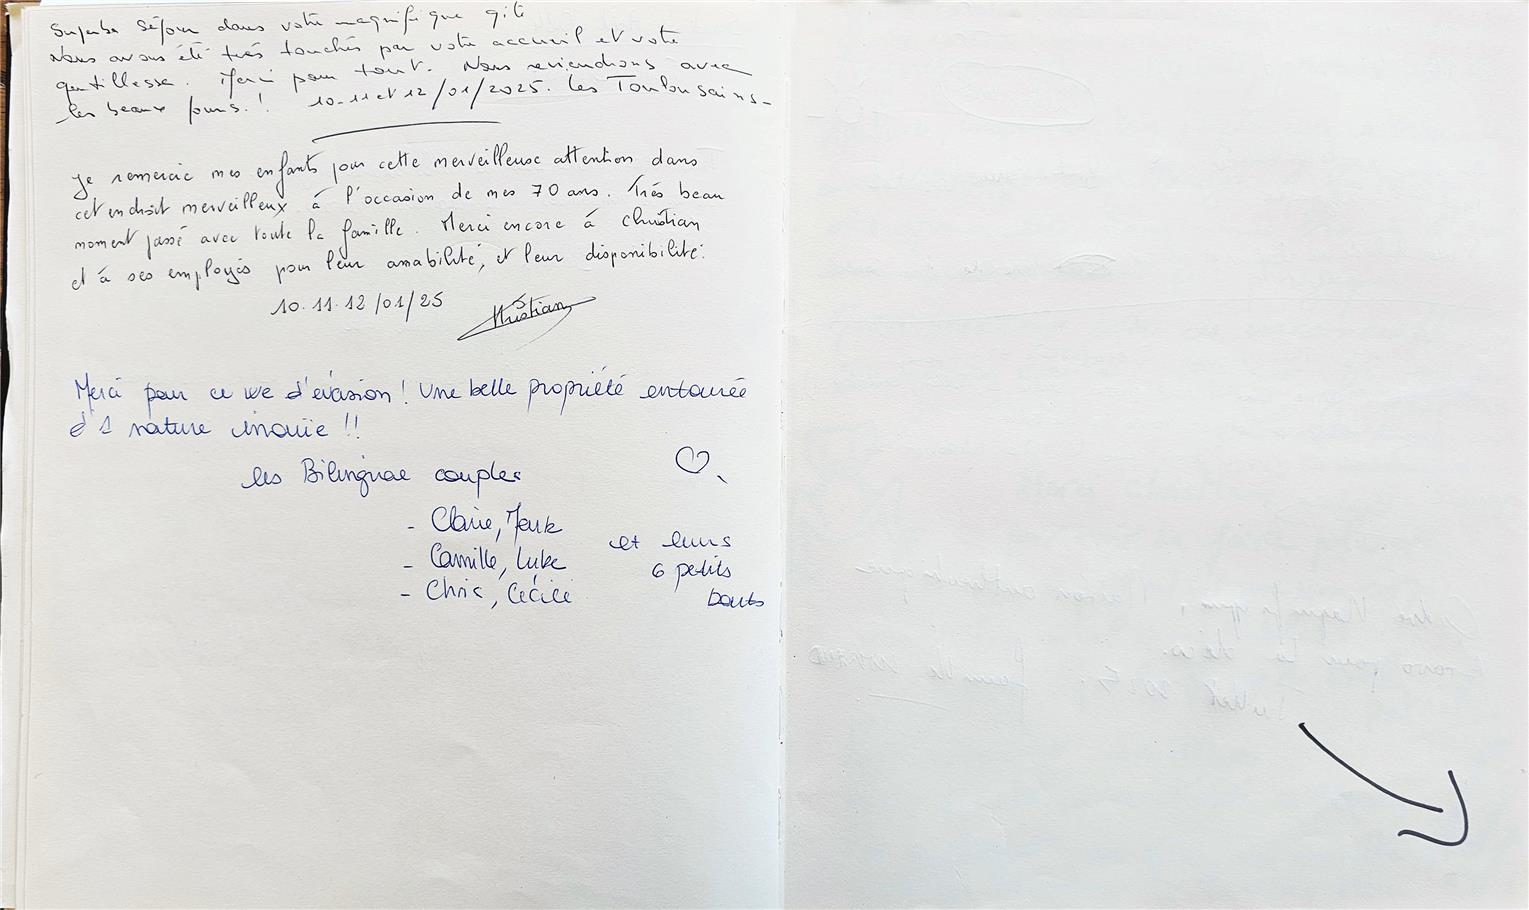 Superbe Séjour dans votre magnifique gite
Nous avons été très touchés par votre accueil et votre
gentillesse. Merci pour tout. Nous reviendrons avec
les beaux jours.! 10-11 et 12/01/2025. Les Toulousains-
Je remercie mes enfants pour cette merveilleuse attention dans
cet endroit merveilleux à l'occasion de mes 70 ans. Très beau
moment passé avec toute la famille. Merci encore à Christian
et à ses employés pour leur amabilité, et leur disponibilité.
10.11.12/01/25
Christian
Merci pour ce we d'évasion! Une belle propriété entourée
d'1 nature inouïe !!
les Bilinguae couples
- Claire, Mark
- Camille, Luke
- Chris, Cécile
et leurs
6 petits
bouts